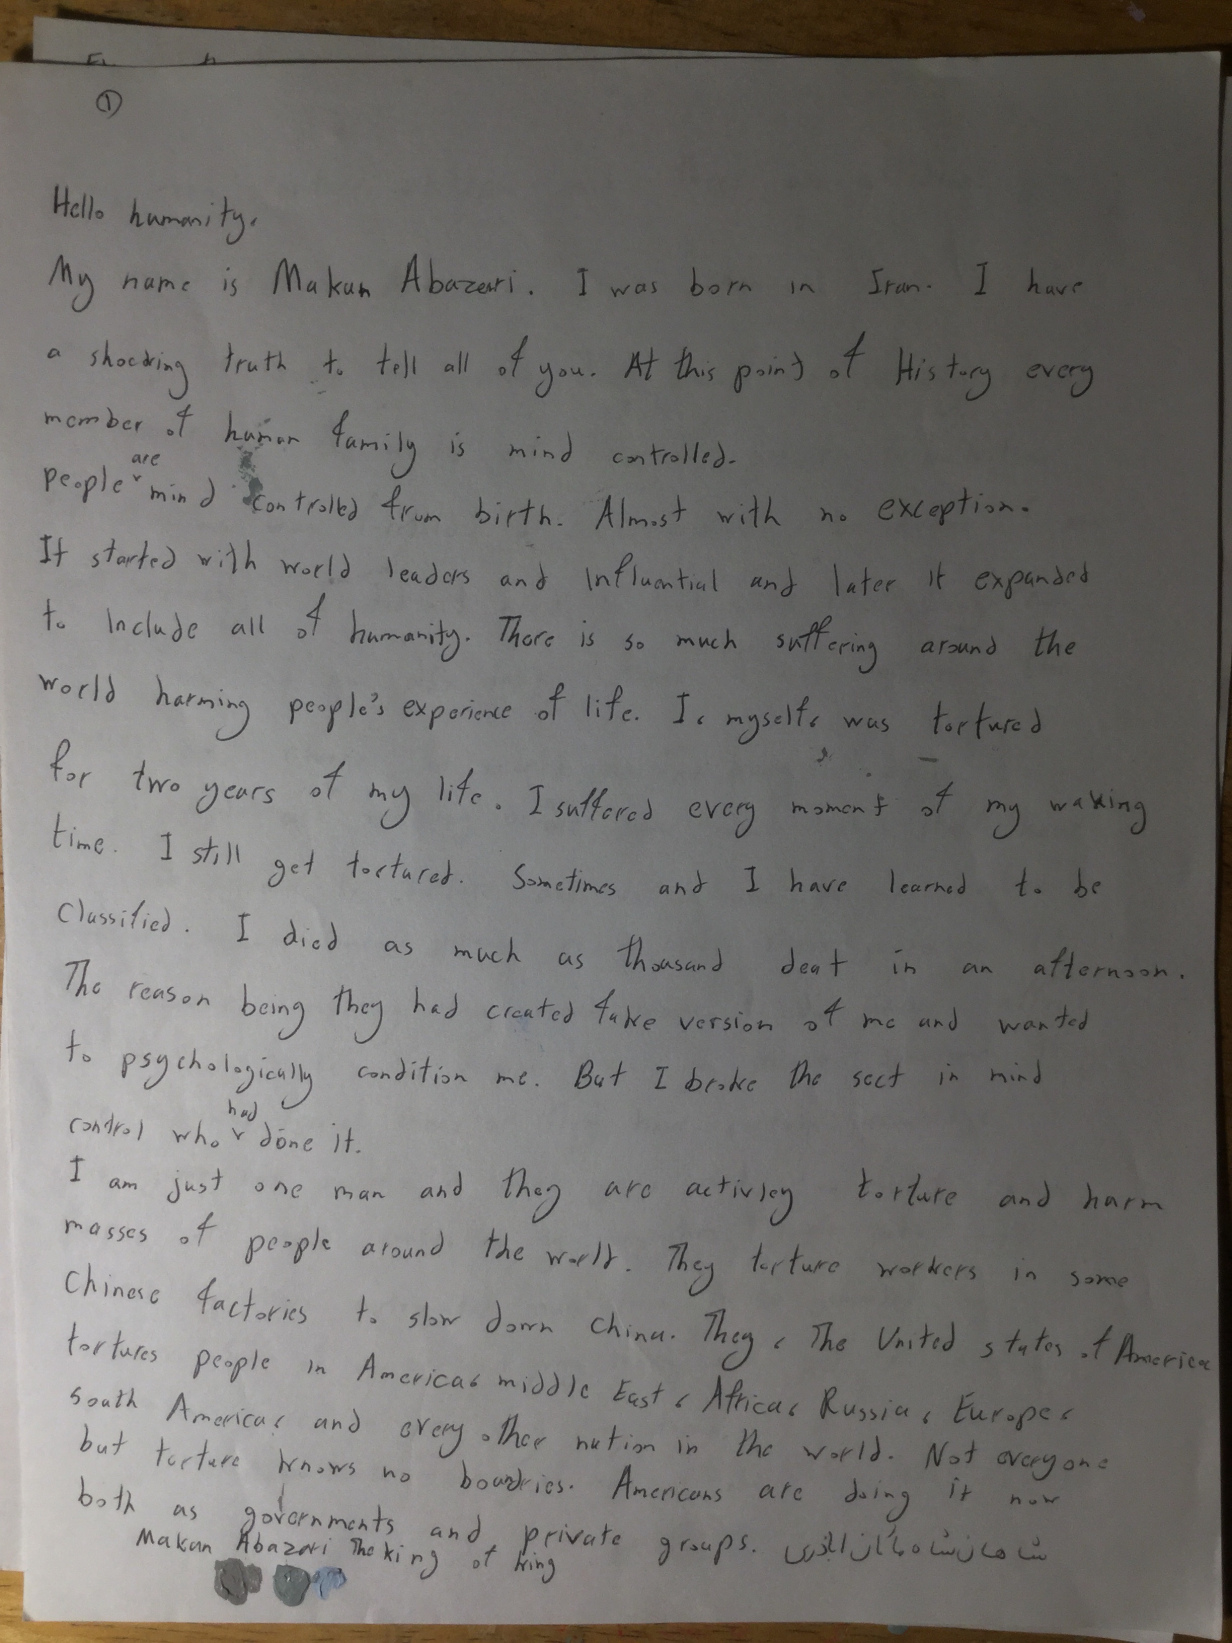 ①
Hello humanity.
My name is Makan Abazari. I was born in Iran. I have
a shocking truth to tell all of you. At this point of History every
member of human family is mind controlled.
people are mind controlled from birth. Almost with no exception.
It started with world leaders and Influential and later it expanded
to Include all of humanity. There is so much suffering around the
world harming people's experience of life. I, myself, was tortured
for two years of my life. I suffered every moment of my waking
time. I still get tortured. Sometimes and I have learned to be
Classified. I died as much as thousand deat in an afternoon.
The reason being they had created fake version of me and wanted
to psychologically condition me. But I broke the sect in mind
control who had done it.
I am just one man and they are activley torture and harm
masses of people around the world. They torture workers in some
Chinese factories to slow down China. They, The United states of America
tortures people in America, middle East, Africa, Russia, Europe,
South America, and every other nation in the world. Not everyone
but torture knows no boundries. Americans are doing it now
both as governments and private groups. شاهان‌شاه ماکان اباذری
Makan Abazari The king of king